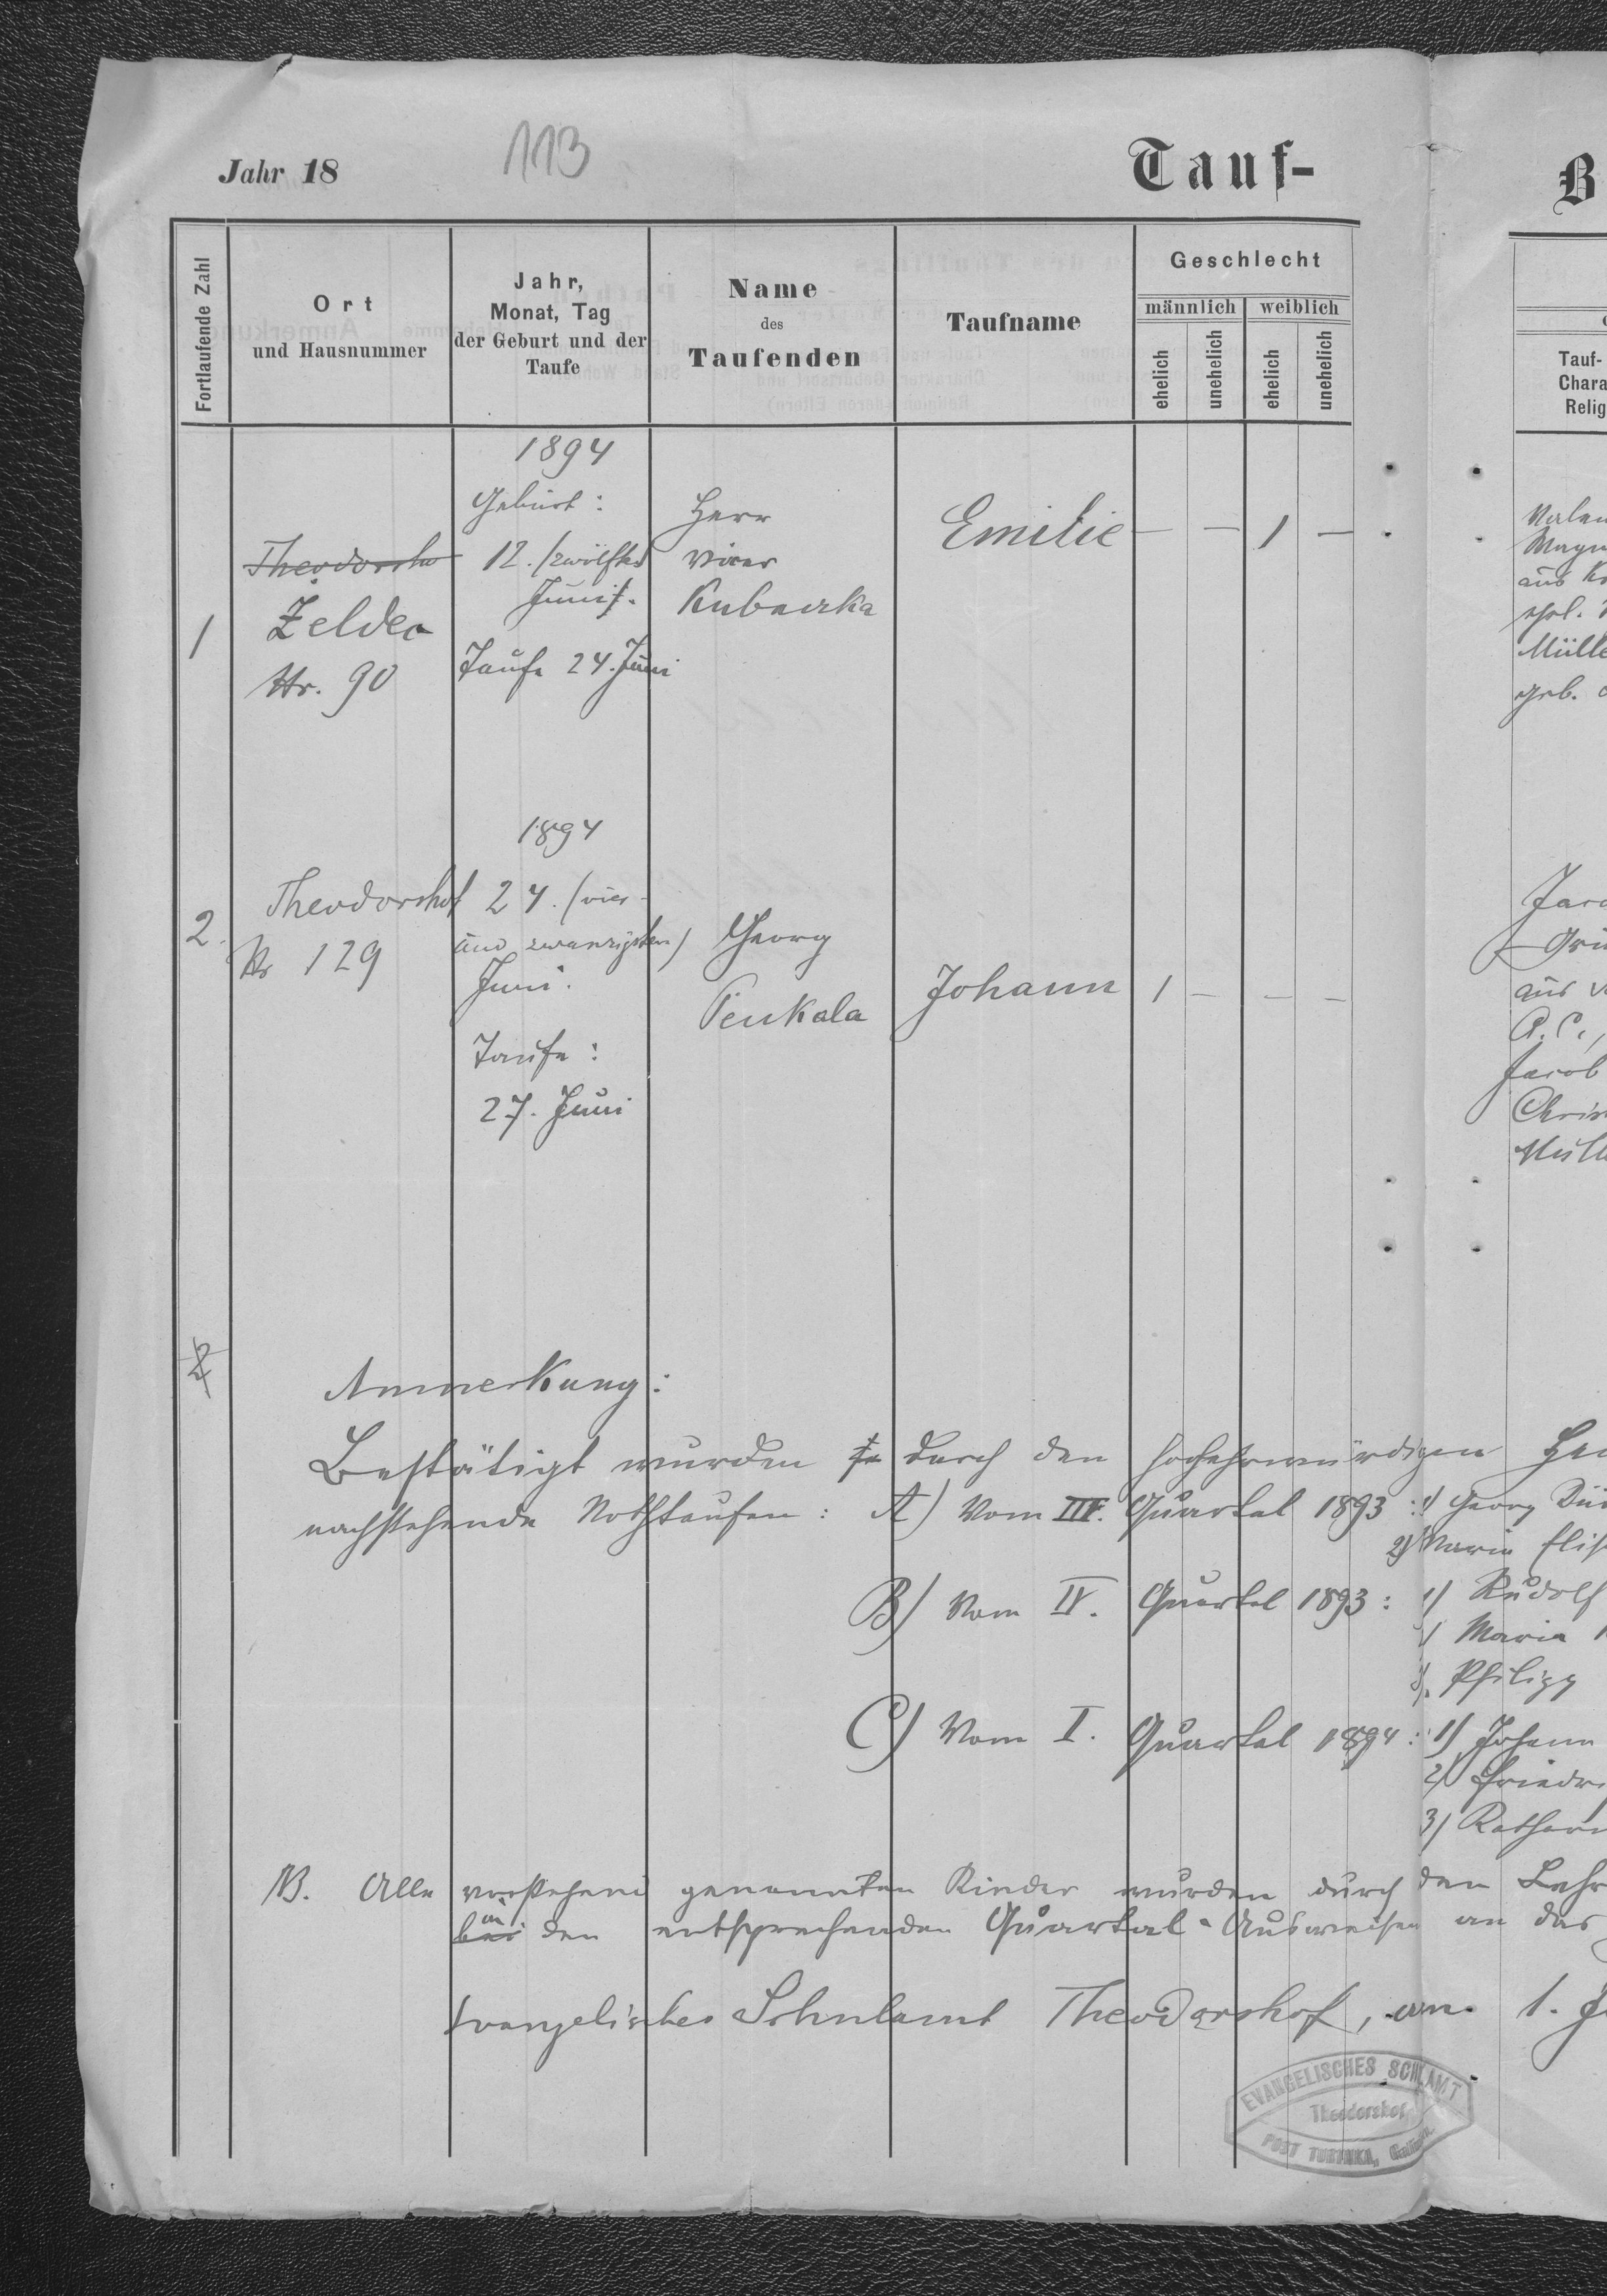 113
Jahr 18
Tauf-
B
Fortlaufende Zahl
Ort
und Hausnummer
Jahr,
Monat, Tag
der Geburt und der
Taufe
Name
des
Taufenden
Taufname
Geschlecht
männlich
weiblich
ehelich
unehelich
ehelich
unehelich
Tauf-
Chara
Relig
1
Theodorsho
Zeldec
Nr. 90
1894
Geburt:
12. (zwölften
Juni).
Taufe 24. Juni
Herr
Vicar
Kubaczka
Emilie
— — 1 —
aus
Mülle
geb.
2.
Theodorshof
Nr 129
1894
24. (vier-
und zwanzigsten)
Juni.
Taufe:
27. Juni
Georg
Penkala
Johann
1 — — —
aus
A.C.,
Jacob
Chris
Anmerkung:
Bestätigt wurden durch den hochehrwürdigen Her
nachstehende Nothtaufen: A) Vom III. Quartal 1893: 1) Georg
2) Maria Elis
B) Vom IV. Quartal 1893: 1) Rudolf
Maria
Philipp
C) Vom I. Quartal 1894: 1) Johann
2) Friedr
3) Kathari
NB. Alle vorstehend genannten Kinder wurden durch den Lehr
in
bei den entsprechenden Quartal-Ausweisen an das
Evangelisches Schulamt Theodorshof, am 1. J
EVANGELISCHES SCHLAMT
Theodorshof
POST